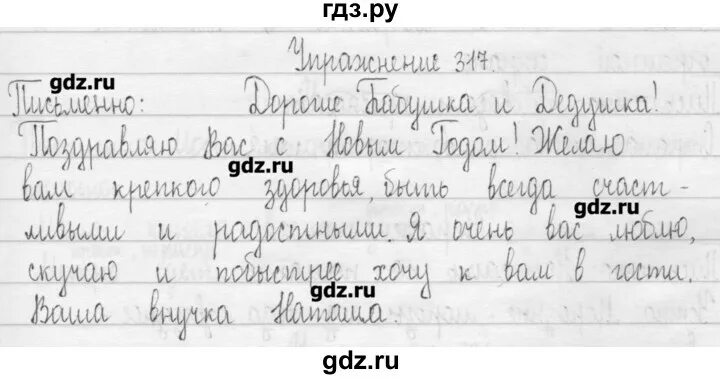 гдз.ру
Упражнение 317
gdz.ru
Письменно: Дорогие Бабушка и Дедушка!
Поздравляю Вас с Новым Годом! Желаю
gdz.ru
вам крепкого здоровья, быть всегда счаст-
gdz.ru
ливыми и радостными. Я очень вас люблю,
скучаю и побыстрее хочу к вам в гости.
gdz.ru
Ваша внучка Наташа.
gdz.ru